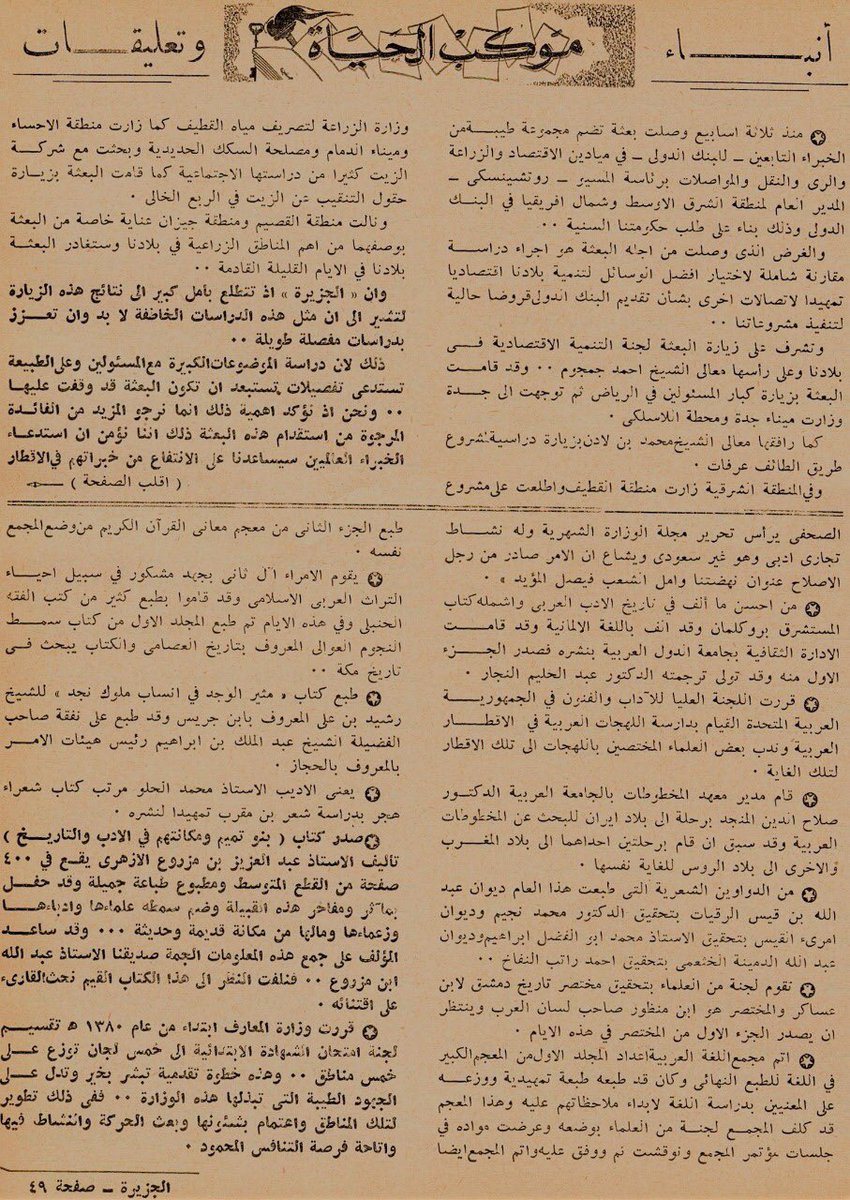 أنبـــاء
موكب الحياة
وتعليقــات
منذ ثلاثة اسابيع وصلت بعثة تضم مجموعة طيبة من
الخبراء التابعين ــ للبنك الدولى ــ في ميادين الاقتصاد والزراعة
والرى والنقل والمواصلات برئاسة المسيو ــ روتشينسكى ــ
المدير العام لمنطقة الشرق الاوسط وشمال افريقيا في البنك
الدولى وذلك بناء على طلب حكومتنا السنية ٠٠
والغرض الذى وصلت من اجله البعثة هو اجراء دراسة
مقارنة شاملة لاختيار افضل الوسائل لتنمية بلادنا اقتصاديا
تمهيدا لاتصالات اخرى بشأن تقديم البنك الدولى قروضا حالية
لتنفيذ مشروعاتنا ٠٠
وتشرف على زيارة البعثة لجنة التنمية الاقتصادية فـــى
بلادنا وعلى رأسها معالى الشيخ احمد جمجوم ٠٠ وقد قامت
البعثة بزيارة كبار المسئولين في الرياض ثم توجهت الى جـــدة
وزارت ميناء جدة ومحطة اللاسلكى ٠
كما رافقها معالى الشيخ محمد بن لادن بزيارة دراسية لمشروع
طريق الطائف عرفات ٠
وفي المنطقة الشرقية زارت منطقة القطيف واطلعت على مشروع
وزارة الزراعة لتصريف مياه القطيف كما زارت منطقة الاحساء
وميناء الدمام ومصلحة السكك الحديدية وبحثت مع شركـــة
الزيت كثيرا من دراستها الاجتماعية كما قامت البعثة بزيـارة
حقول التنقيب عن الزيت في الربع الخالى ٠
ونالت منطقة القصيم ومنطقة جيزان عناية خاصة من البعثة
بوصفهما من اهم المناطق الزراعية في بلادنا وستغادر البعثـة
بلادنا في الايام القليلة القادمة ٠٠
وان « الجزيرة » اذ تتطلع بأمل كبير الى نتائج هذه الزيارة
لتشير الى ان مثل هذه الدراسات الخاطفة لا بد وان تعـــزز
بدراسات مفصلة طويلة ٠٠
ذلك لان دراسة الموضوعات الكبيرة مع المسئولين وعلى الطبيعة
تستدعى تفصيلات تستبعد ان تكون البعثة قد وقفت عليهـا
٠٠ ونحن اذ نؤكد اهمية ذلك انما نرجو المزيد من الفائـدة
المرجوة من استقدام هذه البعثة ذلك اننا نؤمن ان استدعـاء
الخبراء العالميين سيساعدنا على الانتفاع من خبراتهم في الاقطار
( اقلب الصفحة )
الصحفى يرأس تحرير مجلة الوزارة الشهرية وله نشـــاط
تجارى ادبى وهو غير سعودى ويشاع ان الامر صادر من رجل
الاصلاح عنوان نهضتنا وامل الشعب فيصل المؤيد » ٠
من احسن ما ألف في تاريخ الادب العربى واشمله كتاب
المستشرق بروكلمان وقد الف باللغة الالمانية وقد قامـــت
الادارة الثقافية بجامعة الدول العربية بنشره فصدر الجـــزء
الاول منه وقد تولى ترجمته الدكتور عبد الحليم النجار ٠
قررت اللجنة العليا للآداب والفنون في الجمهوريـــة
العربية المتحدة القيام بدارسة اللهجات العربية في الاقطــــار
العربية وندب بعض العلماء المختصين باللهجات الى تلك الاقطار
لتلك الغاية ٠
قام مدير معهد المخطوطات بالجامعة العربية الدكتـور
صلاح الدين المنجد برحلة الى بلاد ايران للبحث عن المخطوطات
العربية وقد سبق ان قام برحلتين احداهما الى بلاد المغـــرب
والاخرى الى بلاد الروس للغاية نفسها ٠
من الدواوين الشعرية التى طبعت هذا العام ديوان عبد
الله بن قيس الرقيات بتحقيق الدكتور محمد نجيم وديوان
امرىء القيس بتحقيق الاستاذ محمد ابو الفضل ابراهيم وديوان
عبد الله الدمينة الخثعمى بتحقيق احمد راتب النفاخ ٠٠
تقوم لجنة من العلماء بتحقيق مختصر تاريخ دمشق لابن
عساكر والمختصر هو ابن منظور صاحب لسان العرب وينتظر
ان يصدر الجزء الاول من المختصر في هذه الايام ٠
اتم مجمع اللغة العربية اعداد المجلد الاول من المعجم الكبير
في اللغة للطبع النهائى وكان قد طبعه طبعة تمهيدية ووزعـــه
على المعنيين بدراسة اللغة لابداء ملاحظاتهم عليه وهذا المعجم
قد كلف المجمع لجنة من العلماء بوضعه وعرضت مواده في
جلسات مؤتمر المجمع ونوقشت ثم ووفق عليه واتم المجمع ايضا
طبع الجزء الثانى من معجم معانى القرآن الكريم من وضع المجمع
نفسه ٠
يقوم الامراء آل ثانى بجهد مشكور في سبيل احيـــاء
التراث العربى الاسلامى وقد قاموا بطبع كثير من كتب الفقه
الحنبلى وفي هذه الايام تم طبع المجلد الاول من كتاب سمـــط
النجوم العوالى المعروف بتاريخ العصامى والكتاب يبحث فــى
تاريخ مكة ٠٠
طبع كتاب « مثير الوجد في انساب ملوك نجد » للشيخ
رشيد بن على المعروف بابن جريس وقد طبع على نفقة صاحب
الفضيلة الشيخ عبد الملك بن ابراهيم رئيس هيئات الامـــر
بالمعروف بالحجاز ٠
يعنى الاديب الاستاذ محمد الحلو مرتب كتاب شعراء
هجر بدراسة شعر بن مقرب تمهيدا لنشره ٠
صدر كتاب ( بنو تميم ومكانتهم في الادب والتاريـــخ )
تأليف الاستاذ عبد العزيز بن مزروع الازهرى يقع في ٤٠٠
صفحة من القطع المتوسط ومطبوع طباعة جميلة وقد حفـــل
بمآثر ومفاخر هذه القبيلة وضم سمطه علماءها وادباءهـــا
وزعماءها ومالها من مكانة قديمة وحديثة ٠٠٠ وقد ساعـــد
المؤلف على جمع هذه المعلومات الجمة صديقنا الاستاذ عبد الله
ابن مزروع ٠٠ فنلفت النظر الى هذا الكتاب القيم نحث القارىء
على اقتنائه ٠
قررت وزارة المعارف ابتداء من عام ١٣٨٠ ه تقسيـــم
لجنة امتحان الشهادة الابتدائية الى خمس لجان توزع علـــى
خمس مناطق ٠٠ وهذه خطوة تقدمية تبشر بخير وتدل علـــى
الجهود الطيبة التى تبذلها هذه الوزارة ٠٠ ففى ذلك تطوير
لتلك المناطق واهتمام بشئونها وبعث الحركة والنشاط فيها
واتاحة فرصة التنافس المحمود ٠
الجزيرة ــ صفحة ٤٩